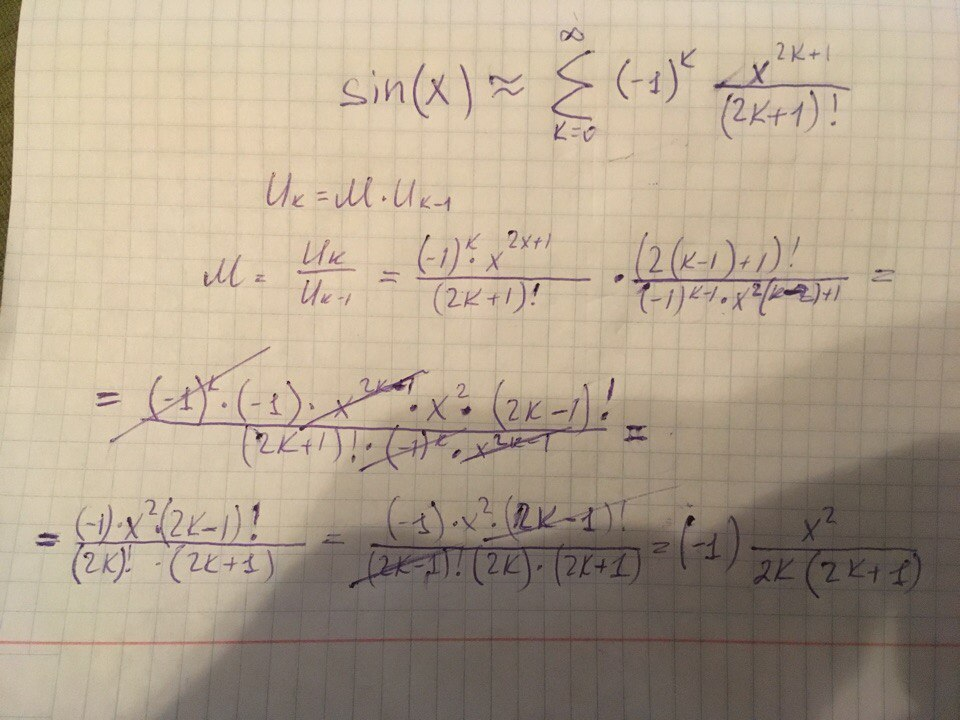 sin(x) ≈ ∑_{k=0}^{∞} (-1)^k x^{2k+1}/(2k+1)!
U_k = M · U_{k-1}
M = U_k/U_{k-1} = (-1)^k · x^{2x+1}/(2k+1)! · (2(k-1)+1)!/((-1)^{k-1} · x^{2(k-2)+1}) =
= (-1)^k · (-1) · x^{2k-1} · x^2 · (2k-1)!/((2k+1)! · (-1)^k · x^{2k-1}) =
= (-1) · x^2 · (2k-1)!/((2k)! · (2k+1)) = (-1) · x^2 · (2k-1)!/((2k-1)! (2k) · (2k+1)) = (-1) x^2/(2k(2k+1))